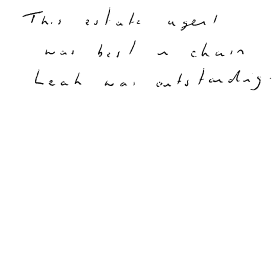 This estate agent
was best in chain
Leah was outstanding